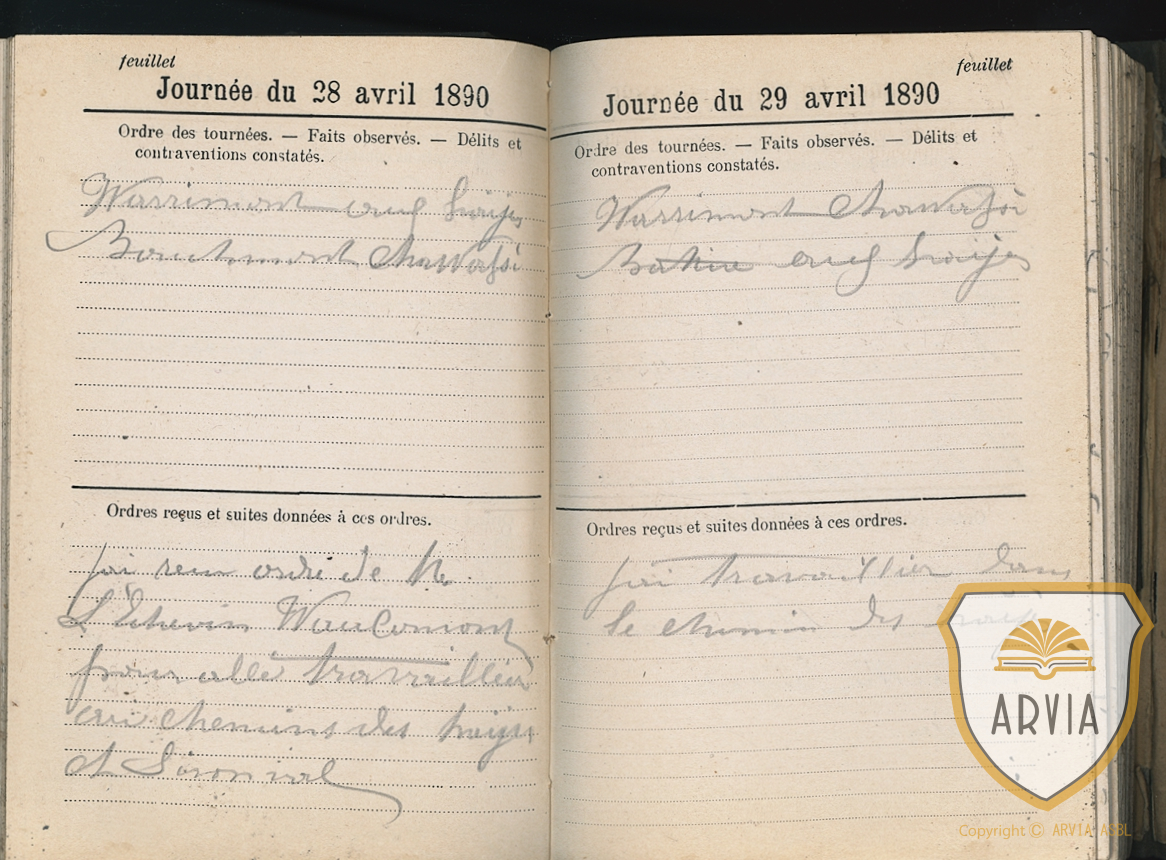 feuillet
Journée du 28 avril 1890
Ordre des tournées. — Faits observés. — Délits et
contraventions constatés.
Warrimont
Bouchmont Chawafsi
Ordres reçus et suites données à ces ordres.
jai recu ordre de Mr.
L'Echevin
pour allé travaillier
aux chemins des
et
feuillet
Journée du 29 avril 1890
Ordre des tournées. — Faits observés. — Délits et
contraventions constatés.
Warrimont Chawafsi
Ordres reçus et suites données à ces ordres.
jai travaillier dans
le chemin des
ARVIA
Copyright © ARVIA ASBL